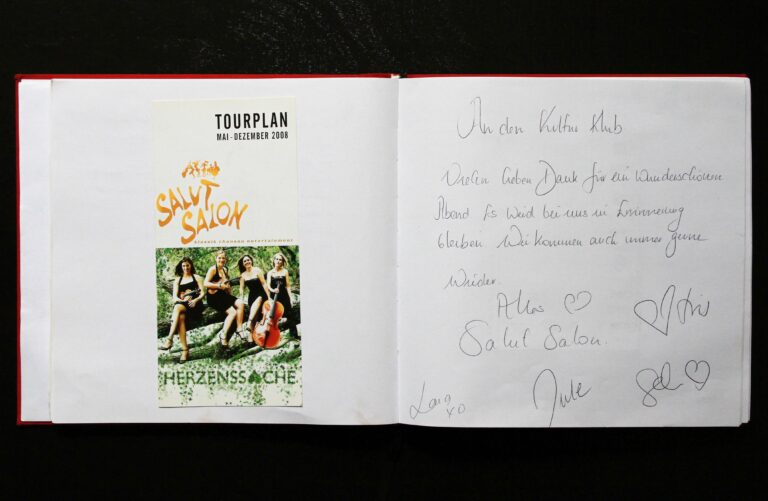 TOURPLAN
MAI - DEZEMBER 2008
SALUT
SALON
klassik chanson entertainment
HERZENSSACHE
An den Kultur Klub
Vielen lieben Dank für ein wunderschönen
Abend Es wird bei uns in Erinnerung
bleiben Wir kommen auch immer gerne
wieder.
Alles
Salut Salon.
Iris
Lana
xo